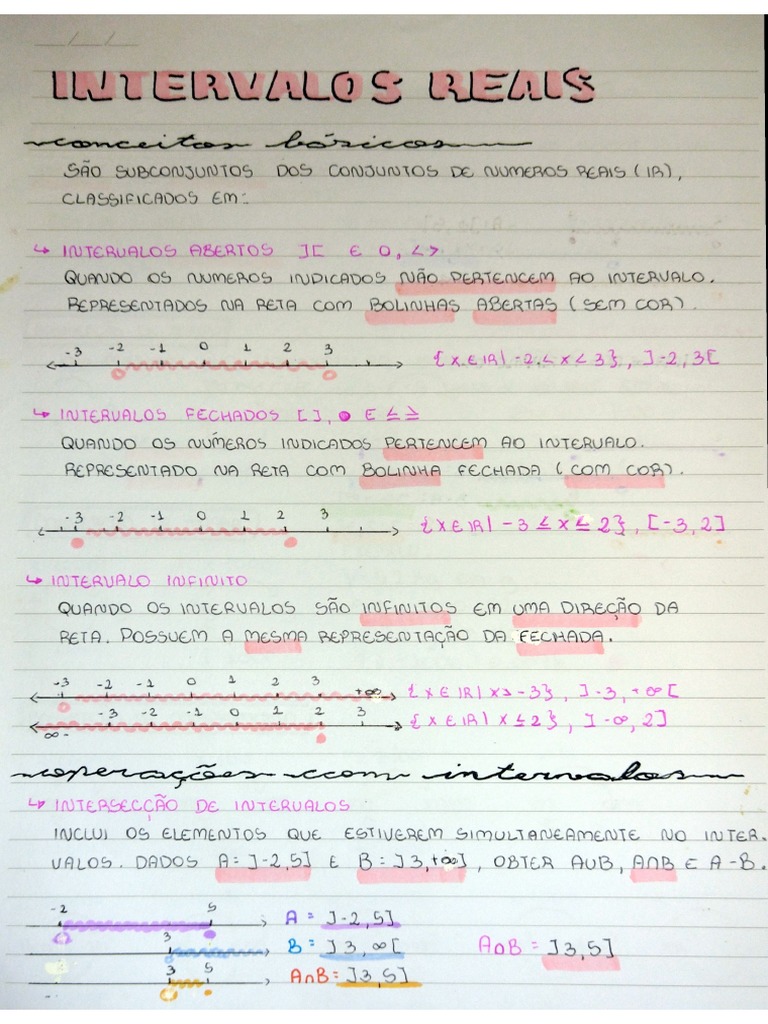 INTERVALOS REAIS
conceitos básicos
SÃO SUBCONJUNTOS DOS CONJUNTOS DE NUMEROS REAIS (IR),
CLASSIFICADOS EM:
↳ INTERVALOS ABERTOS ][ E O, < >
QUANDO OS NUMEROS INDICADOS NÃO PERTENCEM AO INTERVALO.
REPRESENTADOS NA RETA COM BOLINHAS ABERTAS (SEM COR).
-3 -2 -1 0 1 2 3 {X ∈ IR| -2 < X < 3}, ]-2,3[
↳ INTERVALOS FECHADOS [ ], ● E ≤ ≥
QUANDO OS NÚMEROS INDICADOS PERTENCEM AO INTERVALO.
REPRESENTADO NA RETA COM BOLINHA FECHADA (COM COR).
-3 -2 -1 0 1 2 3 {X ∈ IR| -3 ≤ X ≤ 2}, [-3,2]
↳ INTERVALO INFINITO
QUANDO OS INTERVALOS SÃO INFINITOS EM UMA DIREÇÃO DA
RETA. POSSUEM A MESMA REPRESENTAÇÃO DA FECHADA.
-3 -2 -1 0 1 2 3 +∞ {X ∈ IR| X > -3}, ]-3, +∞[
-3 -2 -1 0 1 2 3 {X ∈ IR| X ≤ 2}, ]-∞, 2]
∞-
operações com intervalos
↳ INTERSECÇÃO DE INTERVALOS
INCLUI OS ELEMENTOS QUE ESTIVEREM SIMULTANEAMENTE NO INTER.
VALOS. DADOS A = ]-2,5] E B = ]3,+∞], OBTER AUB, A∩B E A-B.
-2 5 A = ]-2,5]
3 B = ]3,∞[ A∩B = ]3,5]
3 5 A∩B = ]3,5]